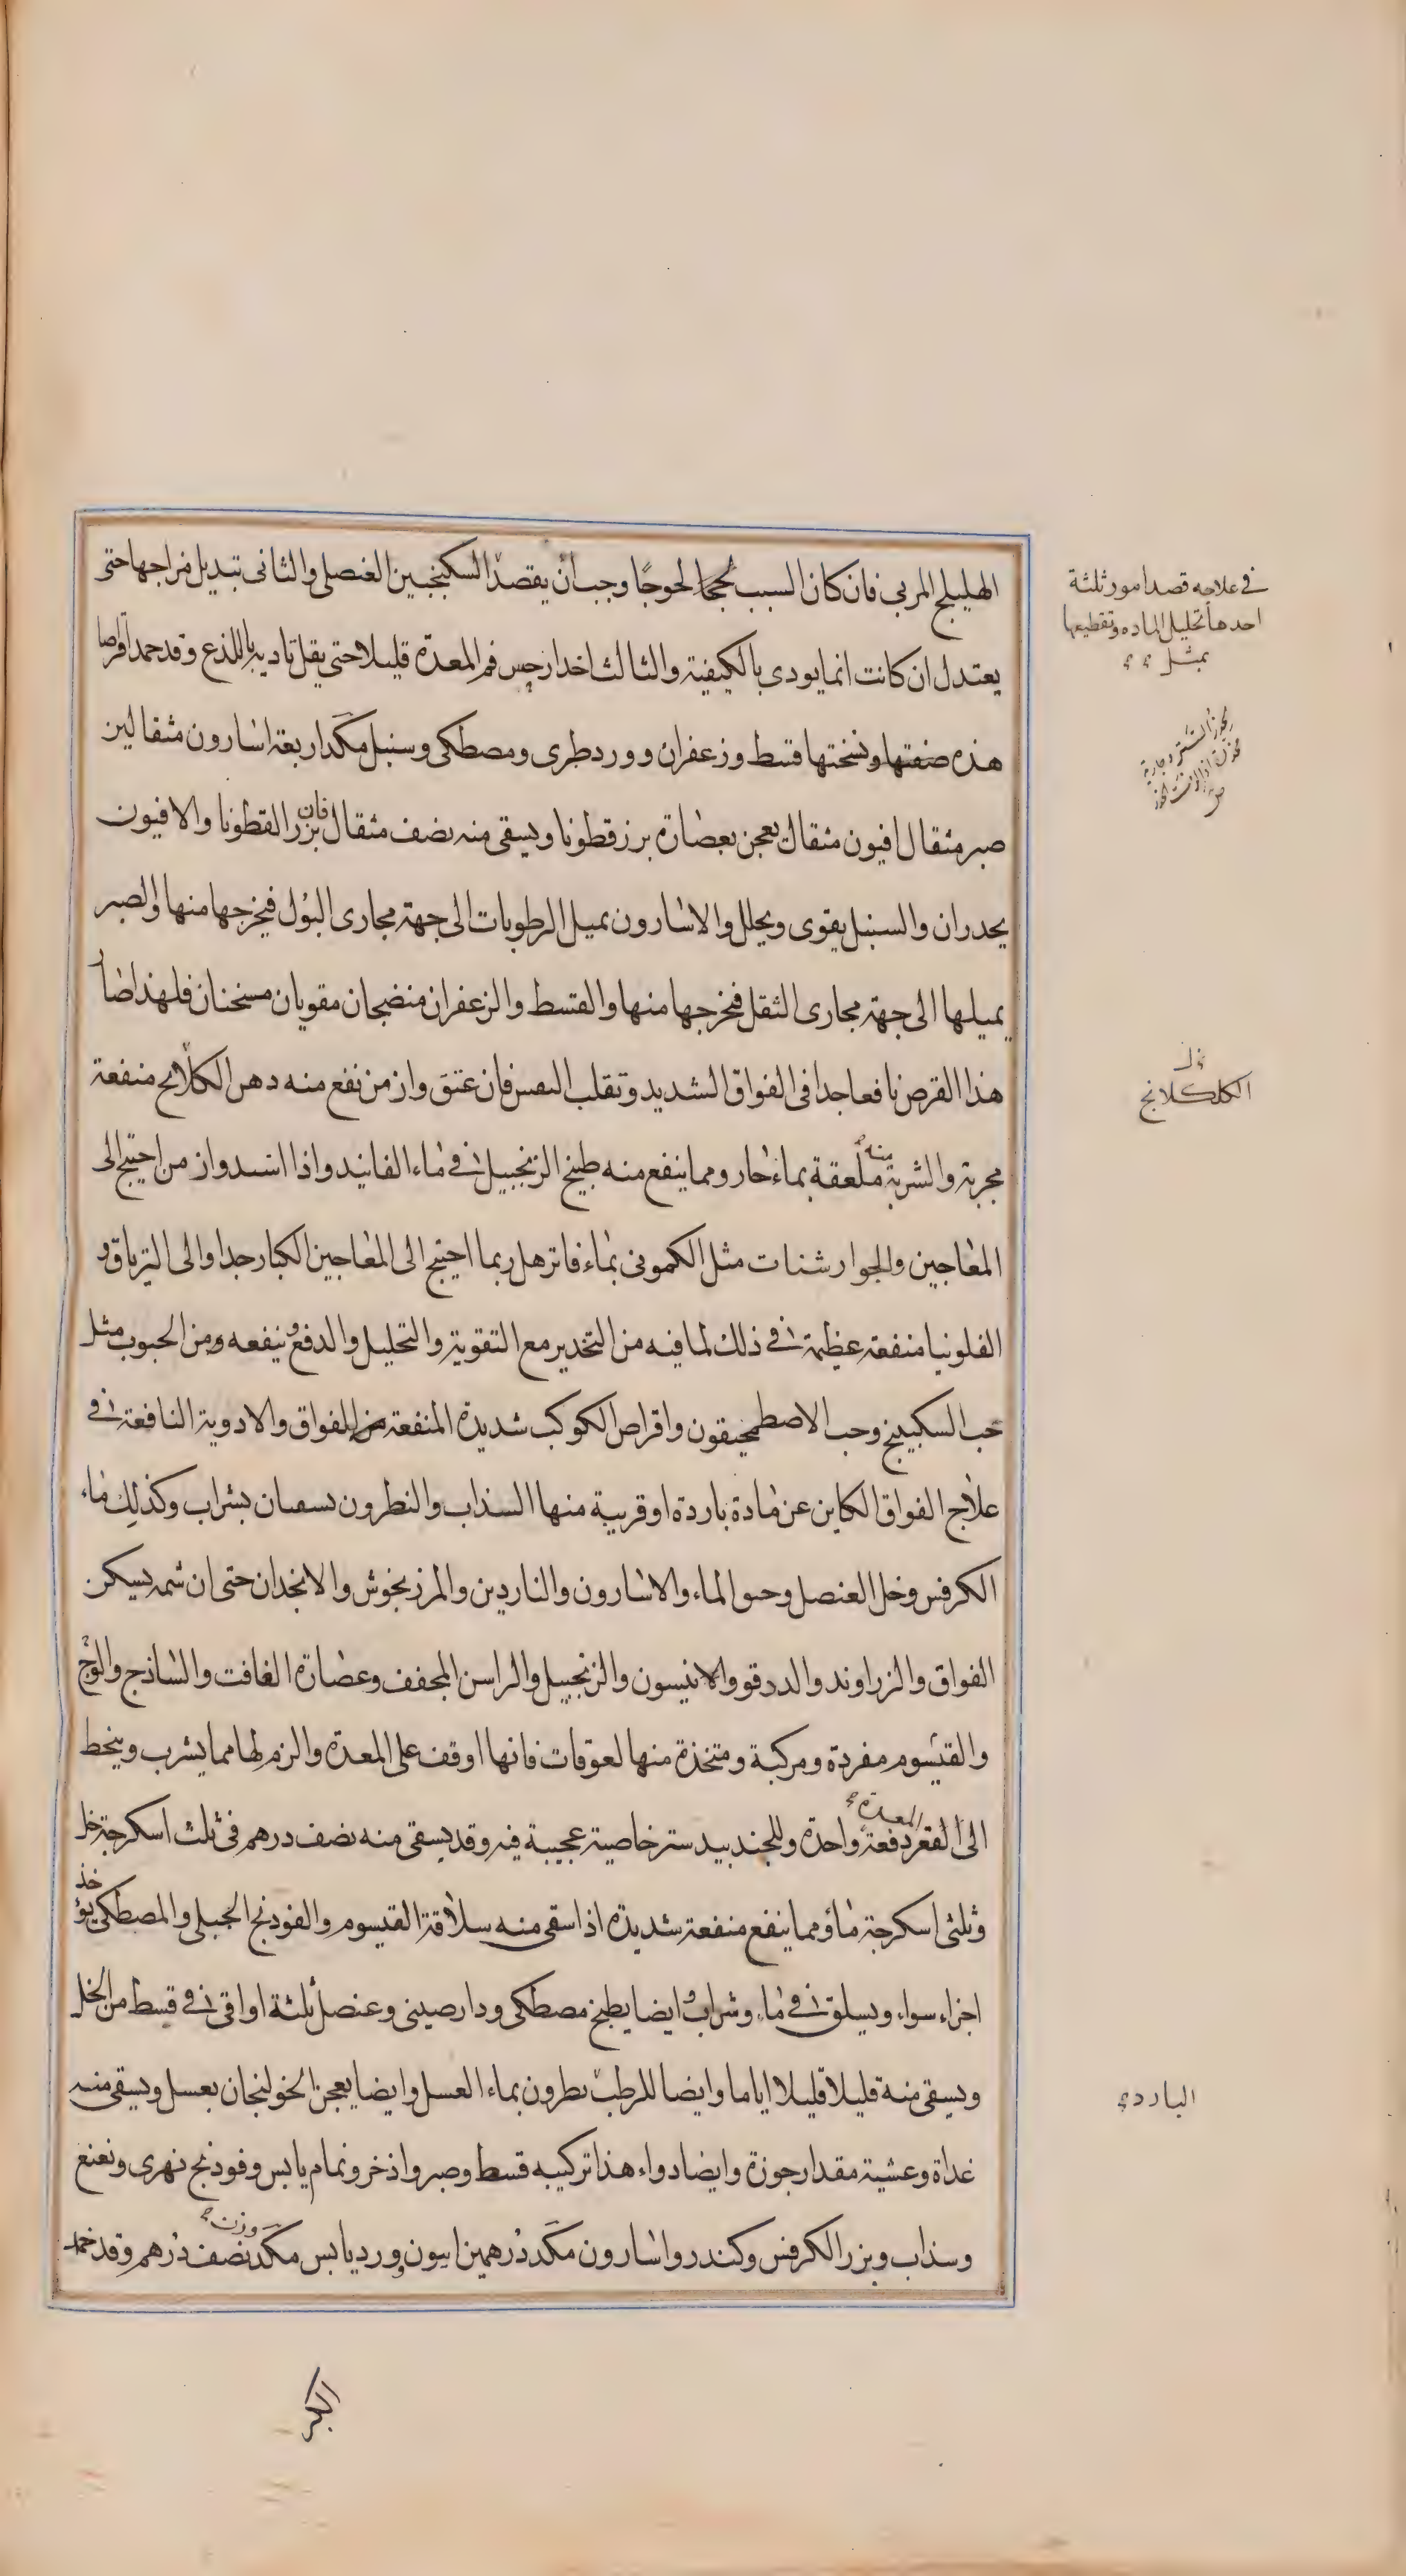 الهليلج المربى فان كان السبب لحجا لحوجا وجب ان يقصد السكنجبين العنصلى والثانى تبديل مزاجها حتى
يعتدل ان كانت انما يودى بالكيفية والثالث اخدار حس فم المعدة قليلا حتى يقل تاديه باللذع وقد حمد اقراصا
هذه صفتها ونسختها قسط وزعفران وورد طرى ومصطكى وسنبل مكد اربعة اسارون مثقالين
صبر مثقال افيون مثقال يعجن بعصارة بزر قطونا ويسقى منه نصف مثقال فان بزر القطونا والافيون
يخدران والسنبل يقوى ويحلل والاسارون يميل الرطوبات الى جهة مجارى البول فيخرجها منها والصبر
يميلها الى جهة مجارى الثقل فيخرجها منها والقسط والزعفران منضجان مقويان مسخنان فلهذا صار
هذا القرص نافعا جدا فى الفواق الشديد وتقلب النفس فان عتق وازمن نفع منه دهن الكلكلانج منفعة
مجربة والشربة منه ملعقة بماء حار ومما ينفع منه طبيخ الزنجبيل فى ماء الفانيد واذا اشتد وازمن احتيج الى
المعاجين والجوارشنات مثل الكمونى بماء فاتر هل ربما احتيج الى المعاجين الكبار جدا والى الترياق و
الفلونيا منفعة عظيمة فى ذلك لما فيه من التخدير مع التقوية والتحليل والدفع وينفعه من الحبوب مثل
حب السكبينج وحب الاصطمخيقون واقراص الكوكب شديدة المنفعة من الفواق والادوية النافعة فى
علاج الفواق الكاين عن مادة باردة او قريبة منها السذاب والنطرون يسقيان بشراب وكذلك ماء
الكرفس وخل العنصل وحبق الماء والاسارون والناردين والمرزنجوش والانجدان حتى ان شمه يسكن
الفواق والزراوند والدوقو والانيسون والزنجبيل والراسن المجفف وعصارة الغافت والساذج والوج
والقيسوم مفردة ومركبة ومتخذة منها لعوقات فانها اوقف على المعدة والزم لها مما يشرب وينحط
الى القعر دفعة واحدة وللجندبيدستر خاصية عجيبة فيه وقد يسقى منه نصف درهم فى ثلث اسكرجة خل
وثلثى اسكرجة ماء ومما ينفع منفعة شديدة اذا سقى منه سلاقة القيسوم والفودنج الجبلى والمصطكى يؤخذ
اجزاء سواء ويسلق فى ماء وشراب وايضا يطبخ مصطكى ودارصينى وعنصل ثلثة اواقى فى قسط من الخل
ويسقى منه قليلا قليلا اياما وايضا للرطب نطرون بماء العسل وايضا يعجن الخولنجان بعسل ويسقى منه
غداة وعشية مقدار جوزة وايضا دواء هذا تركيبه قسط وصبر واذخر ونمام يابس وفودنج نهرى ونعنع
وسذاب وبزر الكرفس وكندر واسارون مكد درهمين افيون وورد يابس مكد وزن نصف درهم وقد حمد
فى علاجه قصد امور ثلثة
احدها تحليل المادة وتقطيعها
بمثل
الكلكلانج
المعدة
البارد